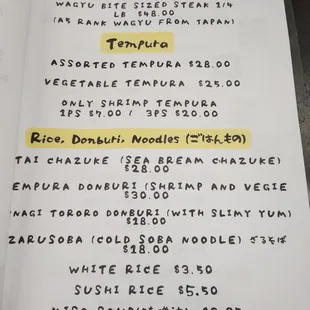 WAGYU BITE SIZED STEAK 1/4
LB $48.00
(A5 RANK WAGYU FROM JAPAN)
Tempura
ASSORTED TEMPURA $28.00
VEGETABLE TEMPURA $25.00
ONLY SHRIMP TEMPURA
1PS $7.00 / 3PS $20.00
Rice, Donburi, Noodles (ごはんもの)
TAI CHAZUKE (SEA BREAM CHAZUKE)
$28.00
EMPURA DONBURI (SHRIMP AND VEGIE
$30.00
NAGI TORORO DONBURI (WITH SLIMY YUM)
$18.00
ZARUSOBA (COLD SOBA NOODLE) ざるそば
$18.00
WHITE RICE $3.50
SUSHI RICE $5.50